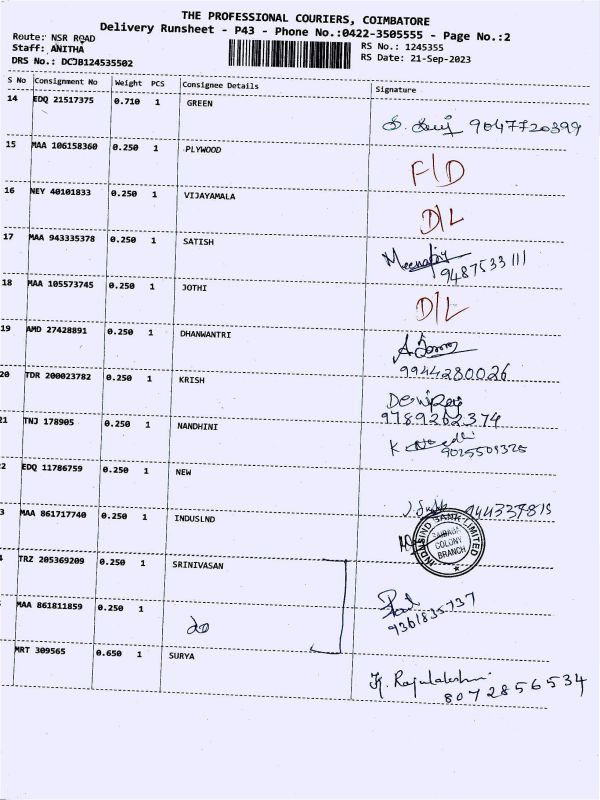 THE PROFESSIONAL COURIERS, COIMBATORE
Delivery Runsheet - P43 - Phone No.:0422-3505555 - Page No.:2
Route: NSR ROAD
RS No.: 1245355
Staff: ANITHA
RS Date: 21-Sep-2023
DRS No.: DCJB124535502
S No Consignment No Weight PCS Consignee Details Signature
14 EDQ 21517375 0.710 1 GREEN
9047720399
15 MAA 106158360 0.250 1 PLYWOOD
F/D
16 NEY 40101833 0.250 1 VIJAYAMALA
D/L
17 MAA 943335378 0.250 1 SATISH
9487533111
18 MAA 105573745 0.250 1 JOTHI
D/L
19 AMD 27428891 0.250 1 DHANWANTRI
9944280026
20 TDR 200023782 0.250 1 KRISH
9789262374
21 TNJ 178905 0.250 1 NANDHINI
K
2 EDQ 11786759 0.250 1 NEW
3 MAA 861717740 0.250 1 INDUSLND
INDUSIND BANK LIMITED
SAIBABA
COLONY
BRANCH
TRZ 205369209 0.250 1 SRINIVASAN
MAA 861811859 0.250 1
do
9361835737
MRT 309565 0.650 1 SURYA
K. Rajalakshmi
8072856534